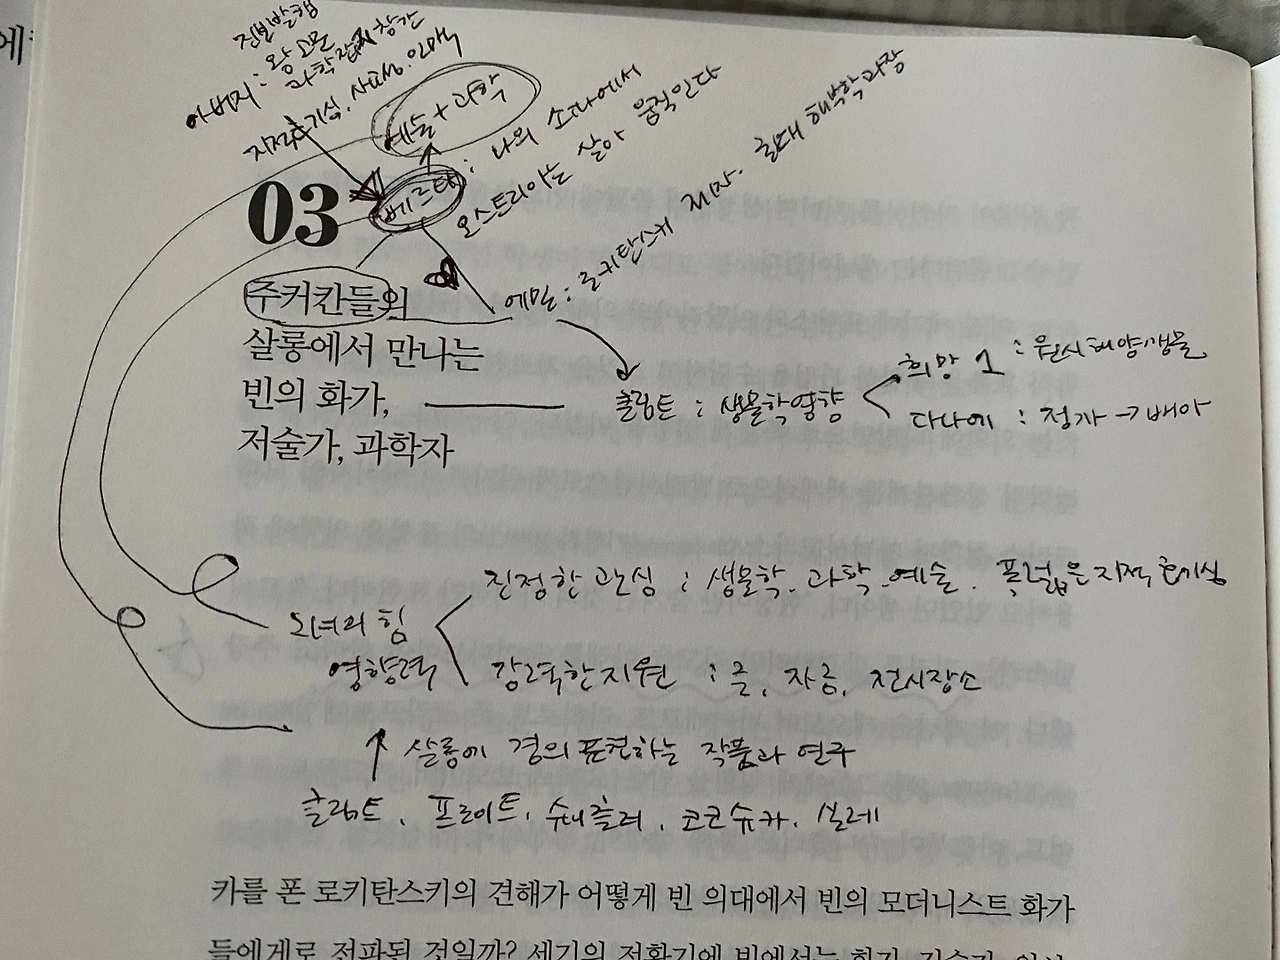 진보발행
아버지 : 왕 고문
과학잡지 창간
지적호기심, 사교성, 인맥
예술 + 과학
베르타 : 나의 소파에서
오스트리아는 살아 움직인다
03
주커칸들의
에밀 : 로키탄스키 제자. 의대 해부학과장
살롱에서 만나는
빈의 화가,
클림트 : 생물학영향
희망 1 : 원시해양생물
다나에 : 정자 → 배아
저술가, 과학자
진정한 관심 : 생물학. 과학. 예술. 폭넓은 지적 호기심
그녀의 힘
영향력
강력한 지원 : 글, 자금, 전시장소
↑ 살롱에 경의 표현하는 작품과 연구
클림트, 프로이트, 슈니츨러, 코코슈카, 실레
카를 폰 로키탄스키의 견해가 어떻게 빈 의대에서 빈의 모더니스트 화가
들에게로 전파된 것일까? 세기의 전환기에 빈에서는 화가, 저술가, 의사